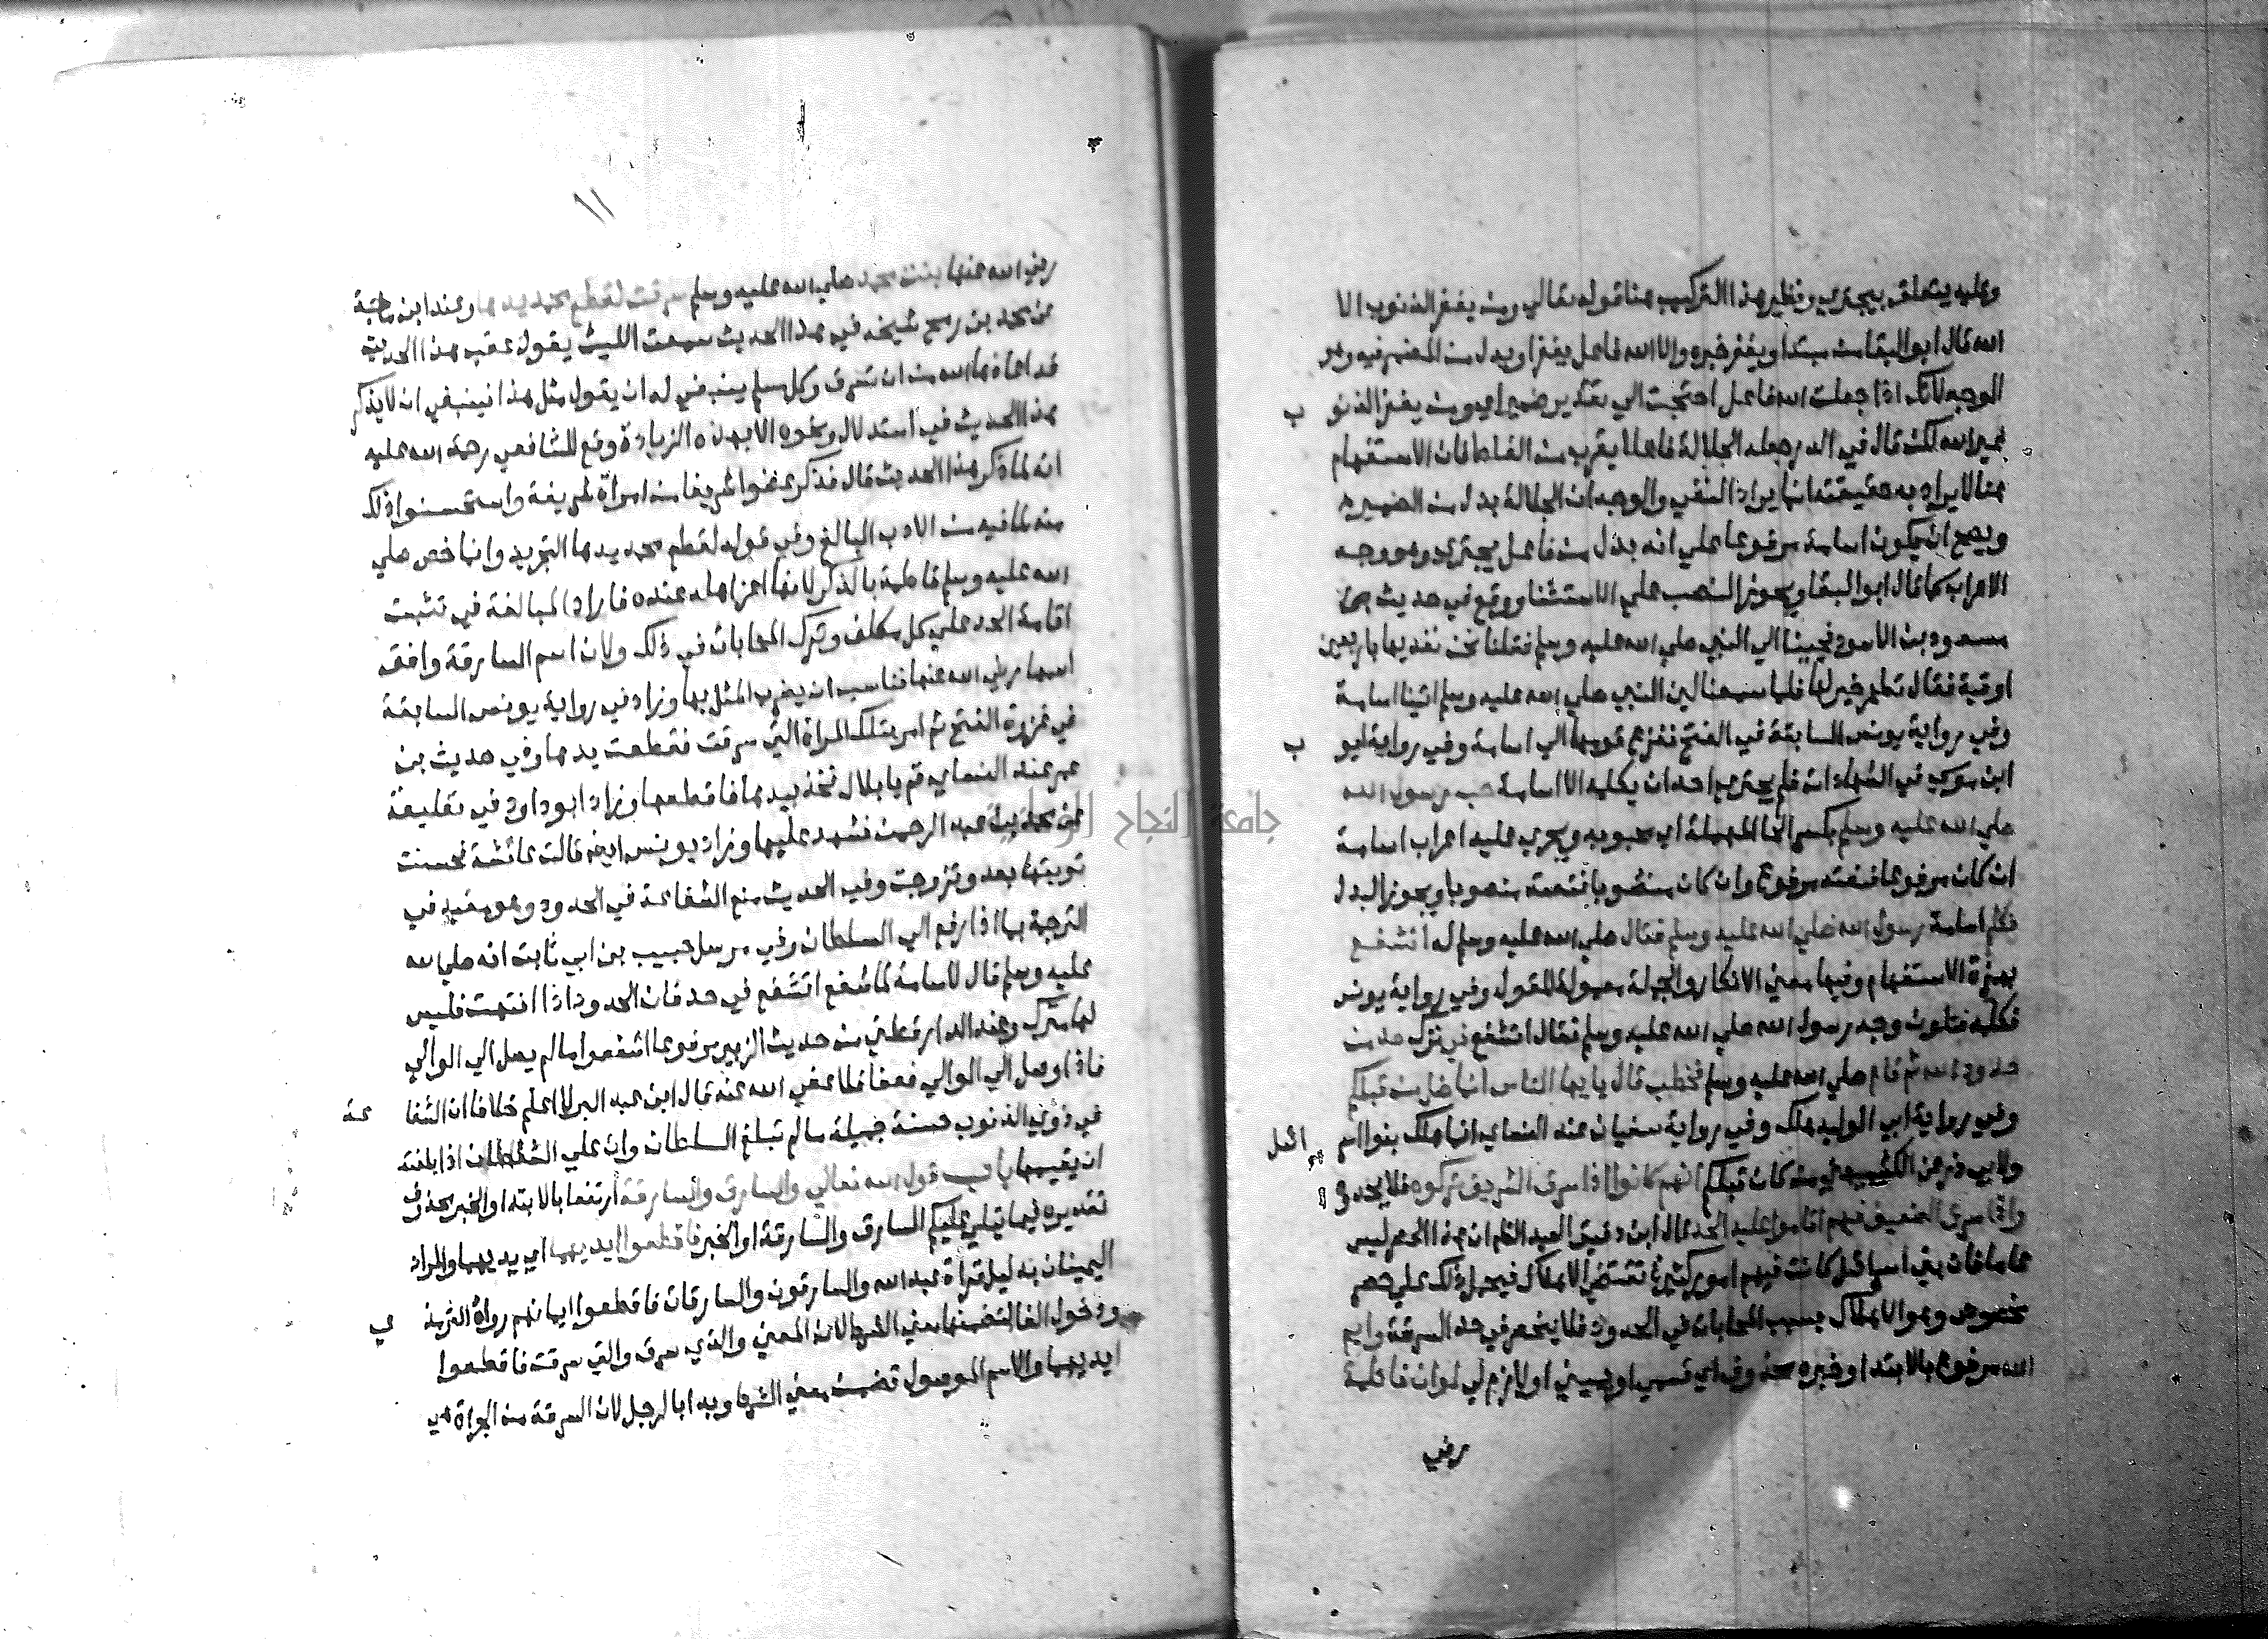 وعليه يتعلق بيجتري ونظير هذا التركيب هنا قوله تعالي ومن يغفر الذنوب الا
الله قال ابو البقا من مبتدا ويغفر خبره والا الله فاعل يغفر او بدل من المضمر فيه وهو
الوجه لانك اذا جعلت الله فاعل احتجت الي تقدير ضمير اي ومن يغفر الذنو ب
غير الله لكن قال في الدر جعله الجلالة فاعلا يقرب من الغلط فان الاستفهام
هنا لا يراد به حقيقته انما يراد النفي والوجه ان الجلالة بدل من الضمير
ويصح ان يكون اسامة مرفوعا علي انه بدل من فاعل يجتري وهو وجه
الاعراب كما قال ابو البقا ويجوز النصب علي الاستثنا ووقع في حديث
مسعود بن الاسود فجينا الي النبي صلي الله عليه وسلم فقلنا نحن نفديها باربعين
اوقية فقال تطهر خير لها فلما سمعنا لين النبي صلي الله عليه وسلم اتينا اسامة
وفي رواية يونس السابقة في الفتح ففزع قومها الي اسامة وفي رواية ايو ب
ابن موسي في الشهادات فلم يجتري احد ان يكلمه الا اسامة حب رسول الله
صلي الله عليه وسلم بكسر الحا المهملة اي محبوبه ويجري عليه اعراب اسامة
ان كان مرفوعا فنعته مرفوع وان كان منصوبا فنعته منصوبا ويجوز البدل
فكلم اسامة رسول الله صلي الله عليه وسلم فقال صلي الله عليه وسلم له اتشفع
بهمزة الاستفهام وفيها معني الانكار والجملة معمولة للقول وفي رواية يونس
فكلمه فتلون وجه رسول الله صلي الله عليه وسلم فقال اتشفع في ترك حد من
حدود الله ثم قام صلي الله عليه وسلم فخطب قال يا يها الناس انما ضل من قبلكم
وفي رواية ابي الوليد هلك وفي رواية سفيان عند النساي انما هلك بنوا اسر ائيل
ولابي ذر عن الكشميهني من كان قبلكم انهم كانوا اذا سرق الشريف تركوه فلا يحدو ا
واذا سرق الضعيف فيهم اقاموا عليه الحد قال ابن دقيق العيد الظاهر ان هذا الحصر ليس
عاما فان بني اسرائيل كانت فيهم امور كثيرة تقتضي الاهلاك فيحمل ذلك علي حصر
مخصوص وهو الاهلاك بسبب المحابات في الحدود فلا ينحصر في حد السرقة وايم
الله مرفوع بالابتدا وخبره محذوف اي قسمي او يميني او لازم لي لو ان فاطمة
رضي
١١
رضي الله عنها بنت محمد صلي الله عليه وسلم سرقت لقطع محمد يدها وعند ابن ماجة
عن محمد بن رمح شيخه في هذا الحديث سمعت الليث يقول عقب هذا الحديث
قد اعاذها الله من ان تسرق وكل مسلم ينبغي له ان يقول مثل هذا فينبغي ان لا يذكر
هذا الحديث في استدلال ونحوه الا بهذه الزيادة ووقع للشافعي رحمة الله عليه
انه لما ذكر هذا الحديث قال فذكر عضوا شريفا من امراة شريفة واستحسنوا ذلك
منه لما فيه من الادب البالغ وفي قوله لقطع محمد يدها التجريد وانما خص صلي
الله عليه وسلم فاطمة بالذكر لانها اعز اهله عنده فاراد المبالغة في تثبيت
اقامة الحد علي كل مكلف وترك المحابات في ذلك ولان اسم السارقة وافق
اسمها رضي الله عنها فناسب ان يضرب المثل بها وزاد في رواية يونس السابقة
في غزوة الفتح ثم امر بتلك المراة التي سرقت فقطعت يدها وفي حديث بن
عمر عند النساي قم يا بلال فخذ بيدها فاقطعها وزاد ابو داود في تعليقة
عن محمد بن عبد الرحمن فشهد عليها وزاد يونس ايضا قالت عائشة فحسنت
توبتها بعد وتزوجت وفي الحديث منع الشفاعة في الحدود وهو مقيد في
الترجمة بما اذا رفع الي السلطان وفي مرسل حبيب بن ابي ثابت انه صلي الله
عليه وسلم قال لاسامة لما شفع اتشفع في حد فان الحدود اذا انتهت فليس
لها مترك وعند الدارقطني من حديث الزبير مرفوعا اشفعوا ما لم يصل الي الوالي
فاذا وصل الي الوالي فعفا فلا عفي الله عنه قال ابن عبد البر لا اعلم خلافا ان الشفا عة
في ذوي الذنوب حسنة جميلة ما لم تبلغ السلطان وان علي السلطان اذا بلغته
ان يقيمها باب قول الله تعالي والسارق والسارقة ارتفعا بالابتدا والخبر محذوف
تقديره فيما يتلي عليكم السارق والسارقة او الخبر فاقطعوا ايديهما اي يديهما والمراد
اليمينان بدليل قراة عبد الله والسارقون والسارقات فاقطعوا ايمانهم رواه الترمذ ي
ودخول الفا لتضمنها معني الشرط لان المعني والذي سرق والتي سرقت فاقطعوا
ايديهما والاسم الموصول تضمن معني الشرط وبدا بالرجل لان السرقة من الجراة
جامعة النجاح